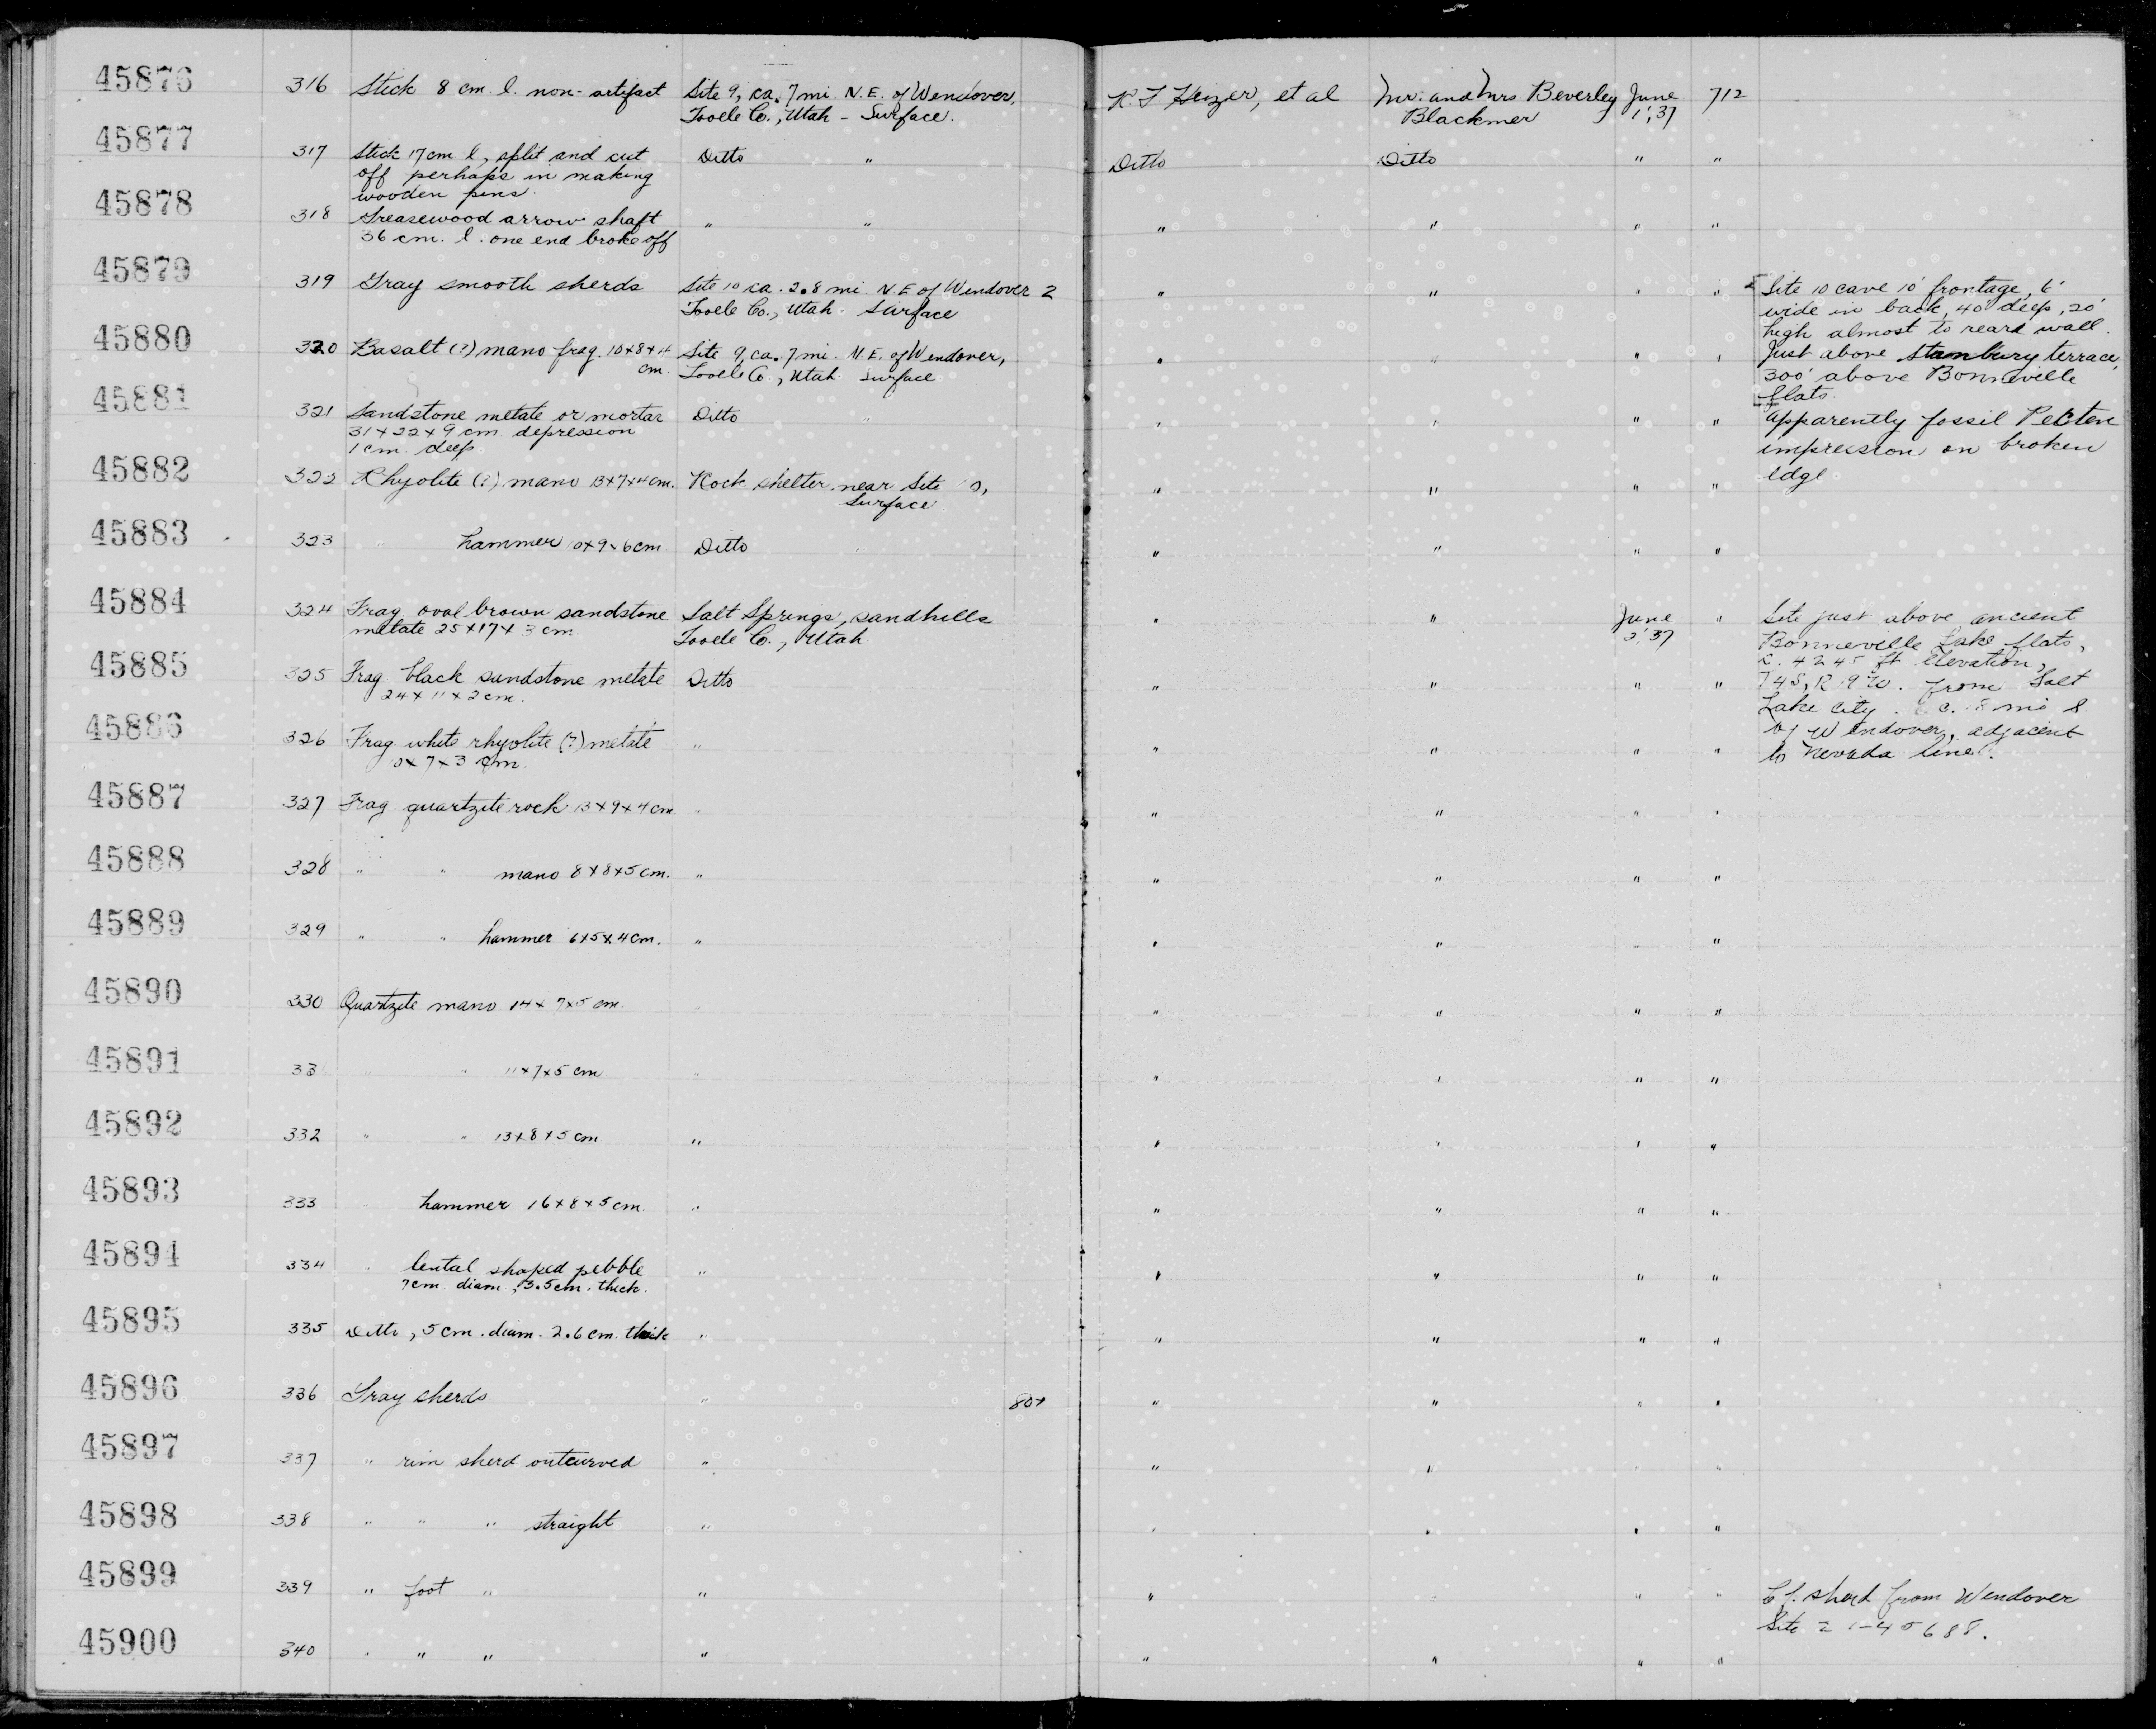 45876 316 Stick 8 cm. l. non-artifact Site 9, ca. 7 mi. N.E. of Wendover, R. F. Heizer, et al Mr. and Mrs Beverley June 712
Tooele Co., Utah - Surface. Blackmer 1, '37
45877 317 Stick 17 cm l, split and cut Ditto " Ditto Ditto " "
off perhaps in making
wooden pins.
45878 318 Greasewood arrow shaft " " " " " "
36 cm. l. one end broke off
45879 319 Gray smooth sherds Site 10 ca. 2.8 mi N.E of Wendover 2 " " " " Site 10 cave 10' frontage, 6'
Tooele Co., Utah. Surface wide in back, 40' deep, 20'
high almost to reard wall.
45880 320 Basalt (?) mano frag. 10x8x4 Site 9, ca. 7 mi. N.E. of Wendover, " " " " Just above Stanbury terrace,
cm. Tooele Co., Utah Surface 300' above Bonneville
flats.
45881 321 Sandstone metate or mortar Ditto " " " " " Apparently fossil Pecten
31x22x9 cm. depression impression on broken
1 cm. deep edge
45882 322 Rhyolite (?) mano 13x7x4 cm. Rock shelter near Site 10, " " " "
Surface.
45883 323 " hammer 10x9x6 cm. Ditto " " " " "
45884 324 Frag. oval brown sandstone Salt Springs, sandhills " " June " Site just above ancient
metate 25x17x3 cm. Tooele Co., Utah 2, '37 Bonneville Lake flats,
c. 4245 ft elevation,
45885 325 Frag. black sandstone metate Ditto " " " " T4S, R19W. from Salt
24x11x2 cm. Lake City. c. 18 mi S
45886 326 Frag. white rhyolite (?) metate " " " " " of Wendover, adjacent
10x7x3 cm. to Nevada line.
45887 327 Frag. quartzite rock 13x9x4 cm. " " " " "
45888 328 " " mano 8x8x5 cm. " " " " "
45889 329 " " hammer 6x5x4 cm. " " " " "
45890 330 Quartzite mano 14x7x5 cm. " " " " "
45891 33 " " 11x7x5 cm " " " " "
45892 332 " " 13x8x5 cm " " " " "
45893 333 " hammer 16x8x5 cm. " " " " "
45894 334 " lental shaped pebble " " " " "
7 cm. diam., 3.5 cm. thick.
45895 335 Ditto, 5 cm. diam. 2.6 cm. thick " " " " "
45896 336 Gray sherds " 80+ " " " "
45897 337 " rim sherd outcurved " " " " "
45898 338 " " " straight " " " " "
45899 339 " foot " " " " " " Cf. sherd from Wendover
Site 2 1-45688.
45900 340 " " " " " " " "